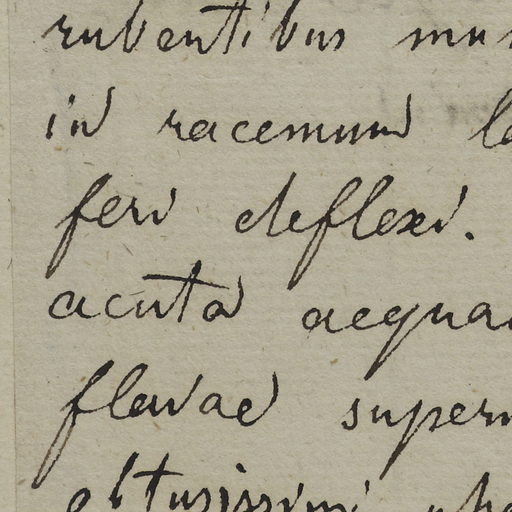 rubentibus mu
in racemum la
feri deflexi.
acuta aequa
flavae super
obtusissimi